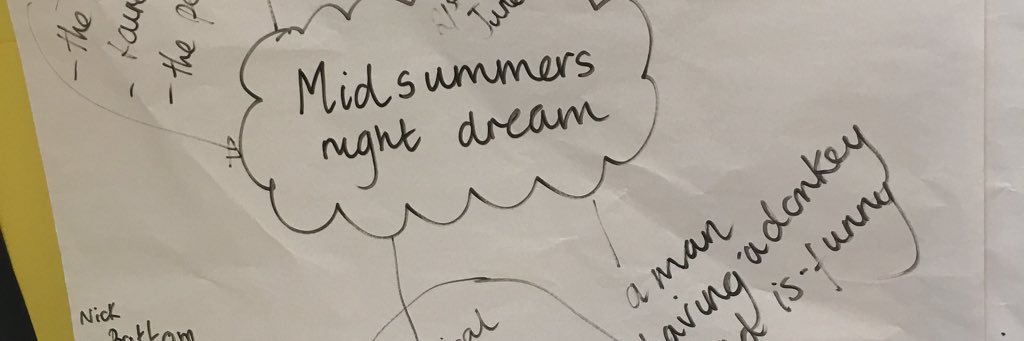 - the
-
- the
June
Midsummers
night dream
a man
having a donkey
is funny
Nick
Bottom